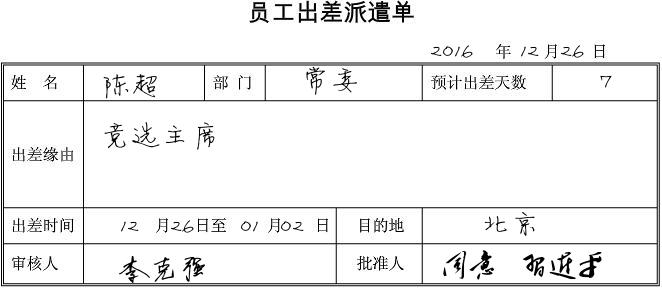 员工出差派遣单
2016 年 12 月 26 日
姓 名 陈超 部 门 常委 预计出差天数 7
出差缘由 竞选主席
出差时间 12 月 26 日至 01 月 02 日 目的地 北京
审核人 李克强 批准人 同意 习近平